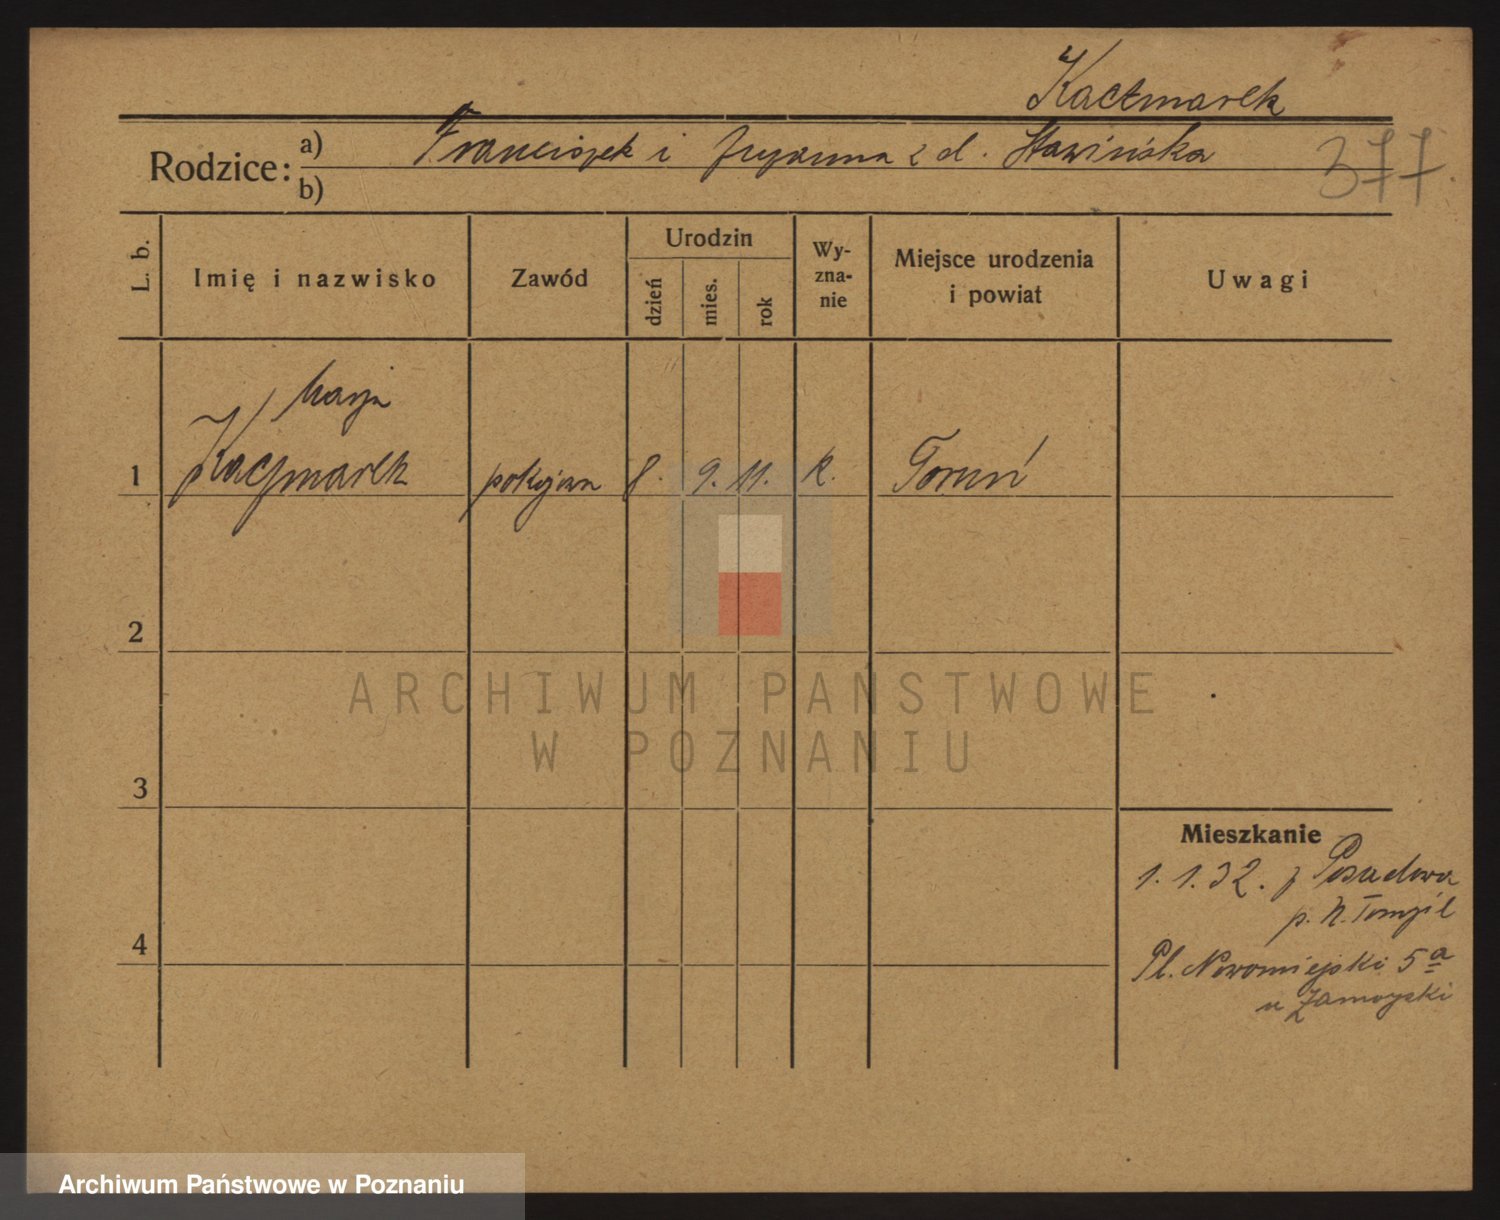 Kaczmarek
Rodzice: a) Franciszek i Zuzanna z d. Stawińska
377.
b)
L. b.
Imię i nazwisko
Zawód
Urodzin
dzień
mies.
rok
Wy-
zna-
nie
Miejsce urodzenia
i powiat
Uwagi
Marja
1 Kaczmarek pokojowa 8. 9. 11. k. Toruń
2
3
4
Mieszkanie
1.1.32. z Posadowa
p. N. Tomyśl
Pl. Nowomiejski 5a
u Zamoyski
ARCHIWUM PAŃSTWOWE
W POZNANIU
Archiwum Państwowe w Poznaniu